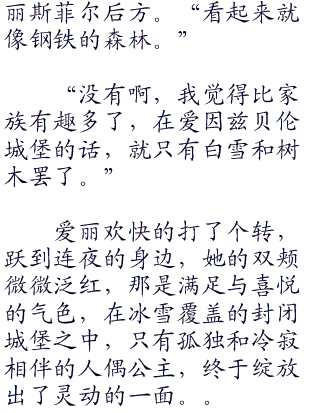 丽斯菲尔后方。“看起来就
像钢铁的森林。”
“没有啊，我觉得比家
族有趣多了，在爱因兹贝伦
城堡的话，就只有白雪和树
木罢了。”
爱丽欢快的打了个转，
跃到连夜的身边，她的双颊
微微泛红，那是满足与喜悦
的气色，在冰雪覆盖的封闭
城堡之中，只有孤独和冷寂
相伴的人偶公主，终于绽放
出了灵动的一面。。